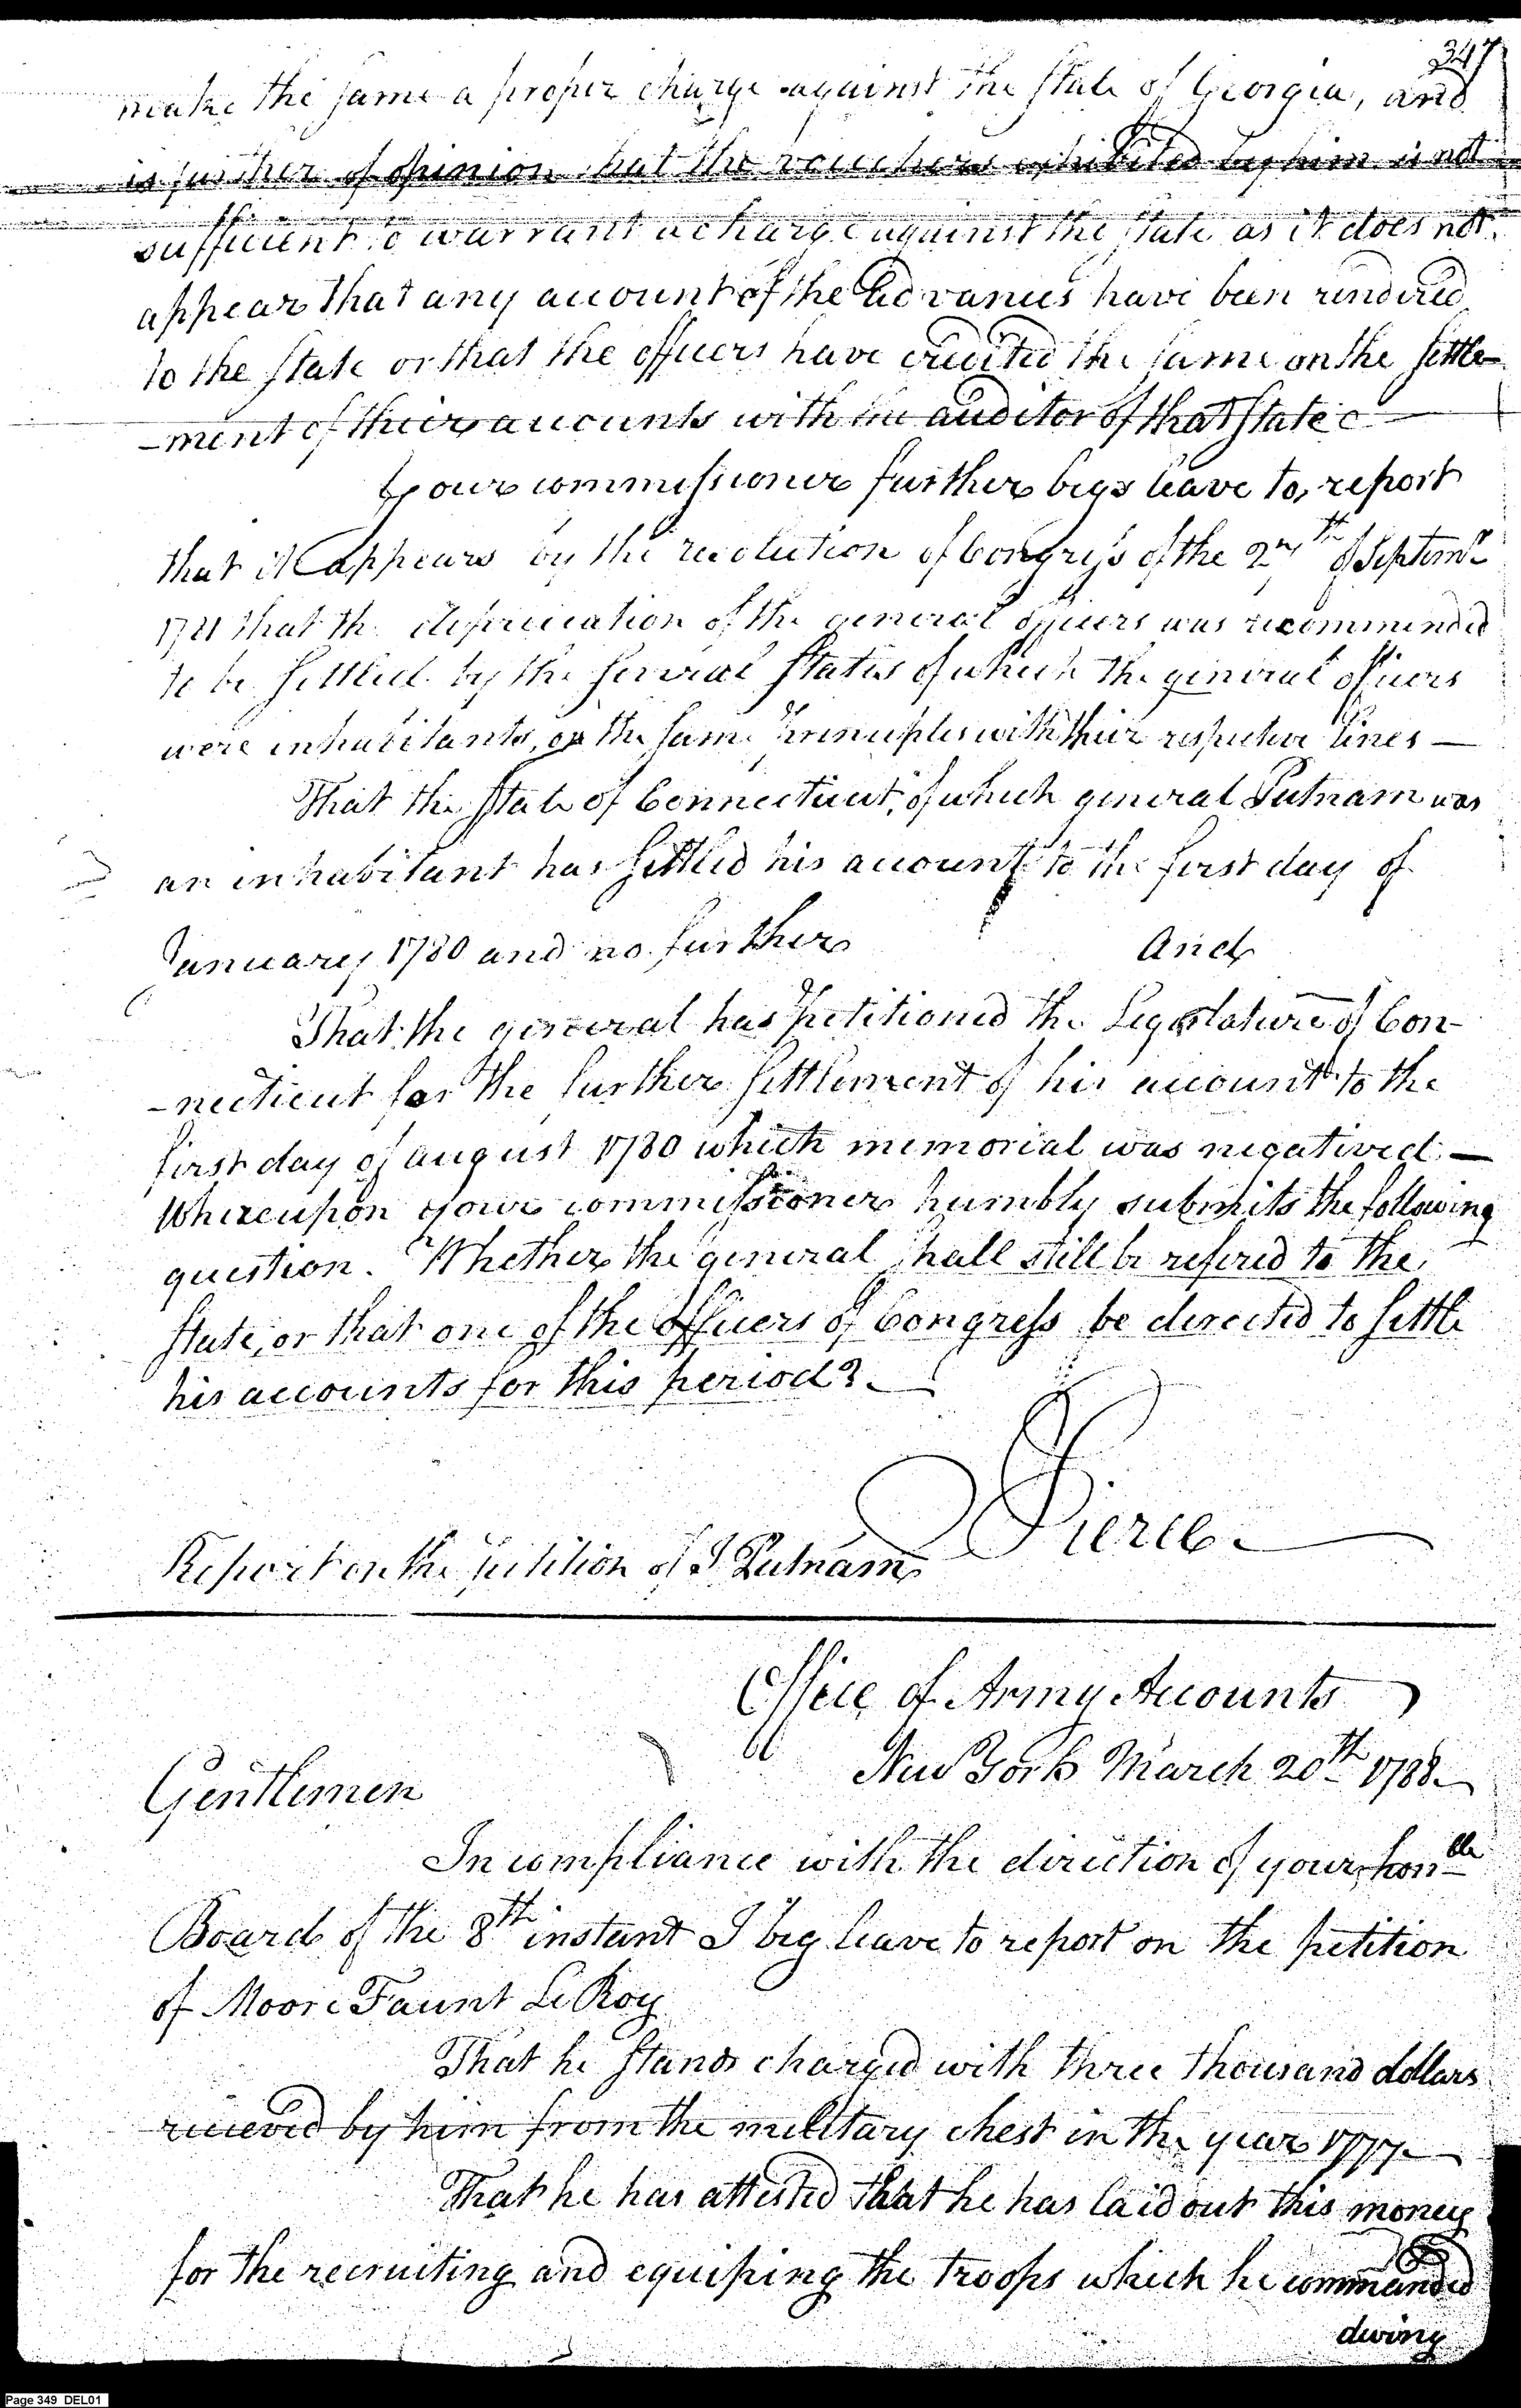 347
make the same a proper charge against the State of Georgia, and
is further of opinion that the vouchers exhibited by him is not
sufficient to warrant a charge against the State as it does not
appear that any account of the advances have been rendered
to the State or that the officers have credited the same on the settle-
-ment of their accounts with the auditor of that State
Your commissioner further begs leave to report
that it appears by the resolution of Congress of the of Septemr
that the depreciation of the general officers was recommended
to be settled by the several States of which the general officers
were inhabitants, on the same principles with their respective lines —
That the State of Connecticut, of which general Putnam was
an inhabitant has settled his account to the first day of
January 1780 and no further And
That the general has petitioned the Legislature of Con-
-necticut for the further settlement of his account to the
first day of august 1780 which memorial was negatived. —
Whereupon your commissioner humbly submits the following
question. Whether the general shall still be refered to the
State, or that one of the officers of Congress be directed to settle
his accounts for this period? —
Pierce
Report on the petition of I Putnam
Office of Army Accounts
New York March 20th 1788
Gentlemen
In compliance with the direction of your honble
Board of the 8th instant I beg leave to report on the petition
of Moore Faunt Le Roy
That he stands charged with three thousand dollars
recieved by him from the military chest in the year 1777 —
That he has attested that he has laid out this money
for the recruiting and equiping the troops which he commanded
during
Page 349 DEL01